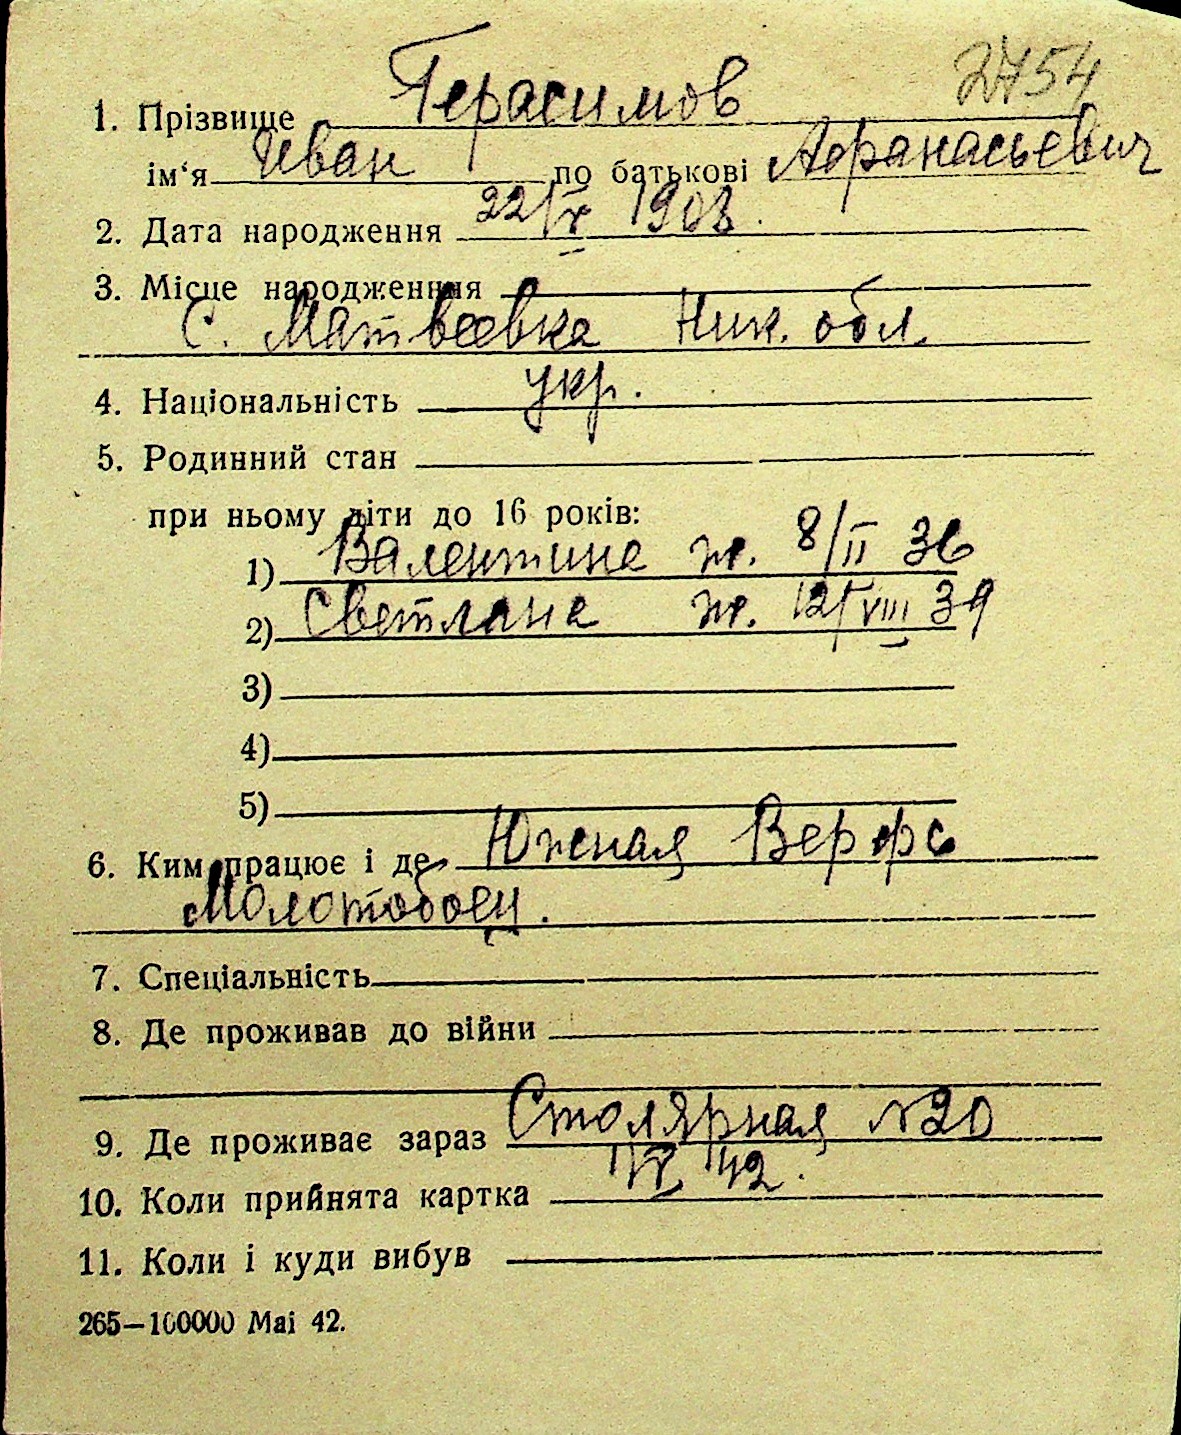 2754
1. Прізвище Герасимов
ім'я Иван по батькові Афанасьевич
2. Дата народження 22/V 1908.
3. Місце народженння
С. Матвеевка Ник. обл.
4. Національність укр.
5. Родинний стан
при ньому діти до 16 років:
1) Валентина ж. 8/II 36
2) Светлана ж. 12/VIII 39
3)
4)
5)
6. Ким працює і де Южная Верфь
Молотобоец.
7. Спеціальність
8. Де проживав до війни
9. Де проживає зараз Столярная №20
10. Коли прийнята картка 42.
11. Коли і куди вибув
265—100000 Mai 42.